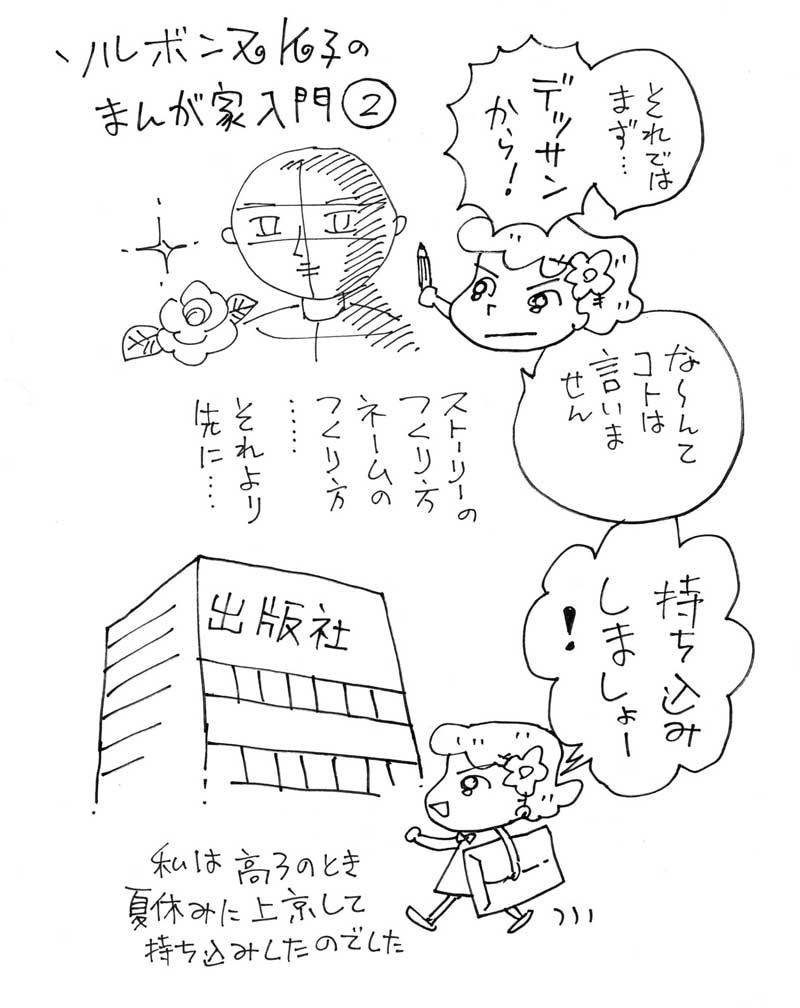 ソルボンヌK子の
まんが家入門②
それでは
まず…
デッサン
から!
な〜んて
コトは
言いま
せん
ストーリーの
つくり方
ネームの
つくり方
……
それより
先に…
持ち込み
しましょー
!
出版社
私は高3のとき
夏休みに上京して
持ち込みしたのでした